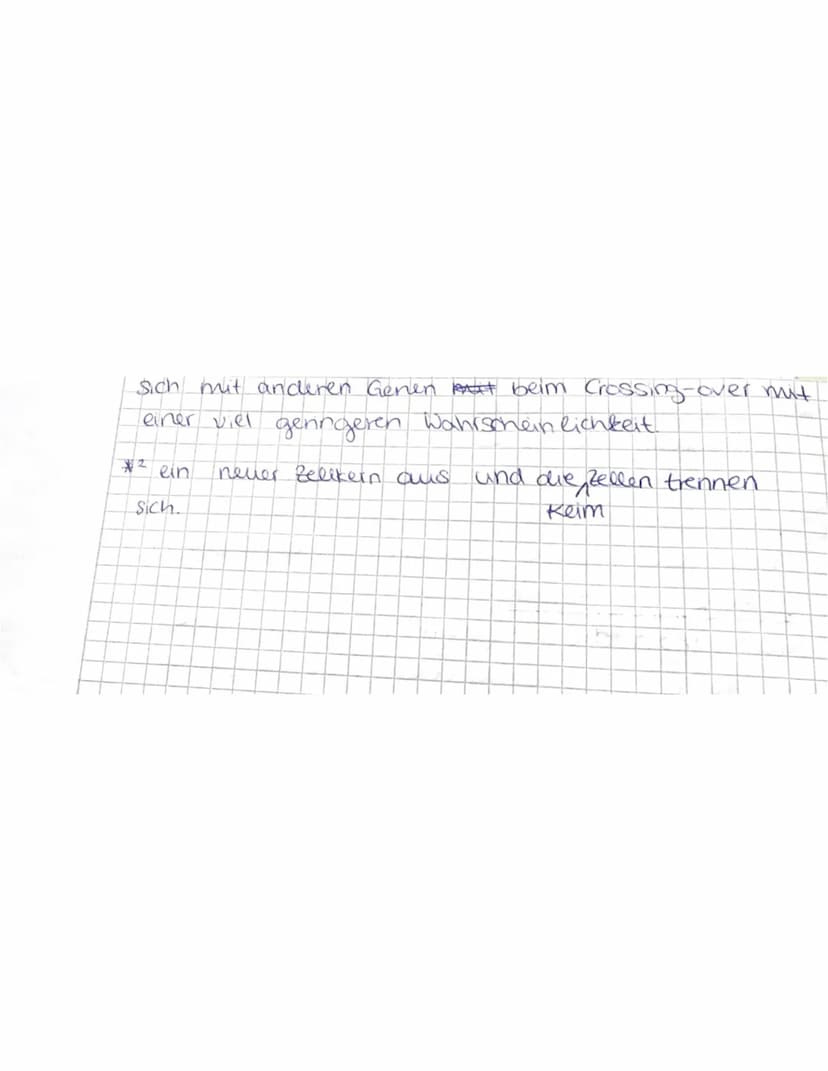 sich mit anderen Genen beim Crossing-over mit
einer viel geringeren Wahrscheinlichkeit.
*² ein neuer Zellkern aus und die Zellen trennen
sich. Keim